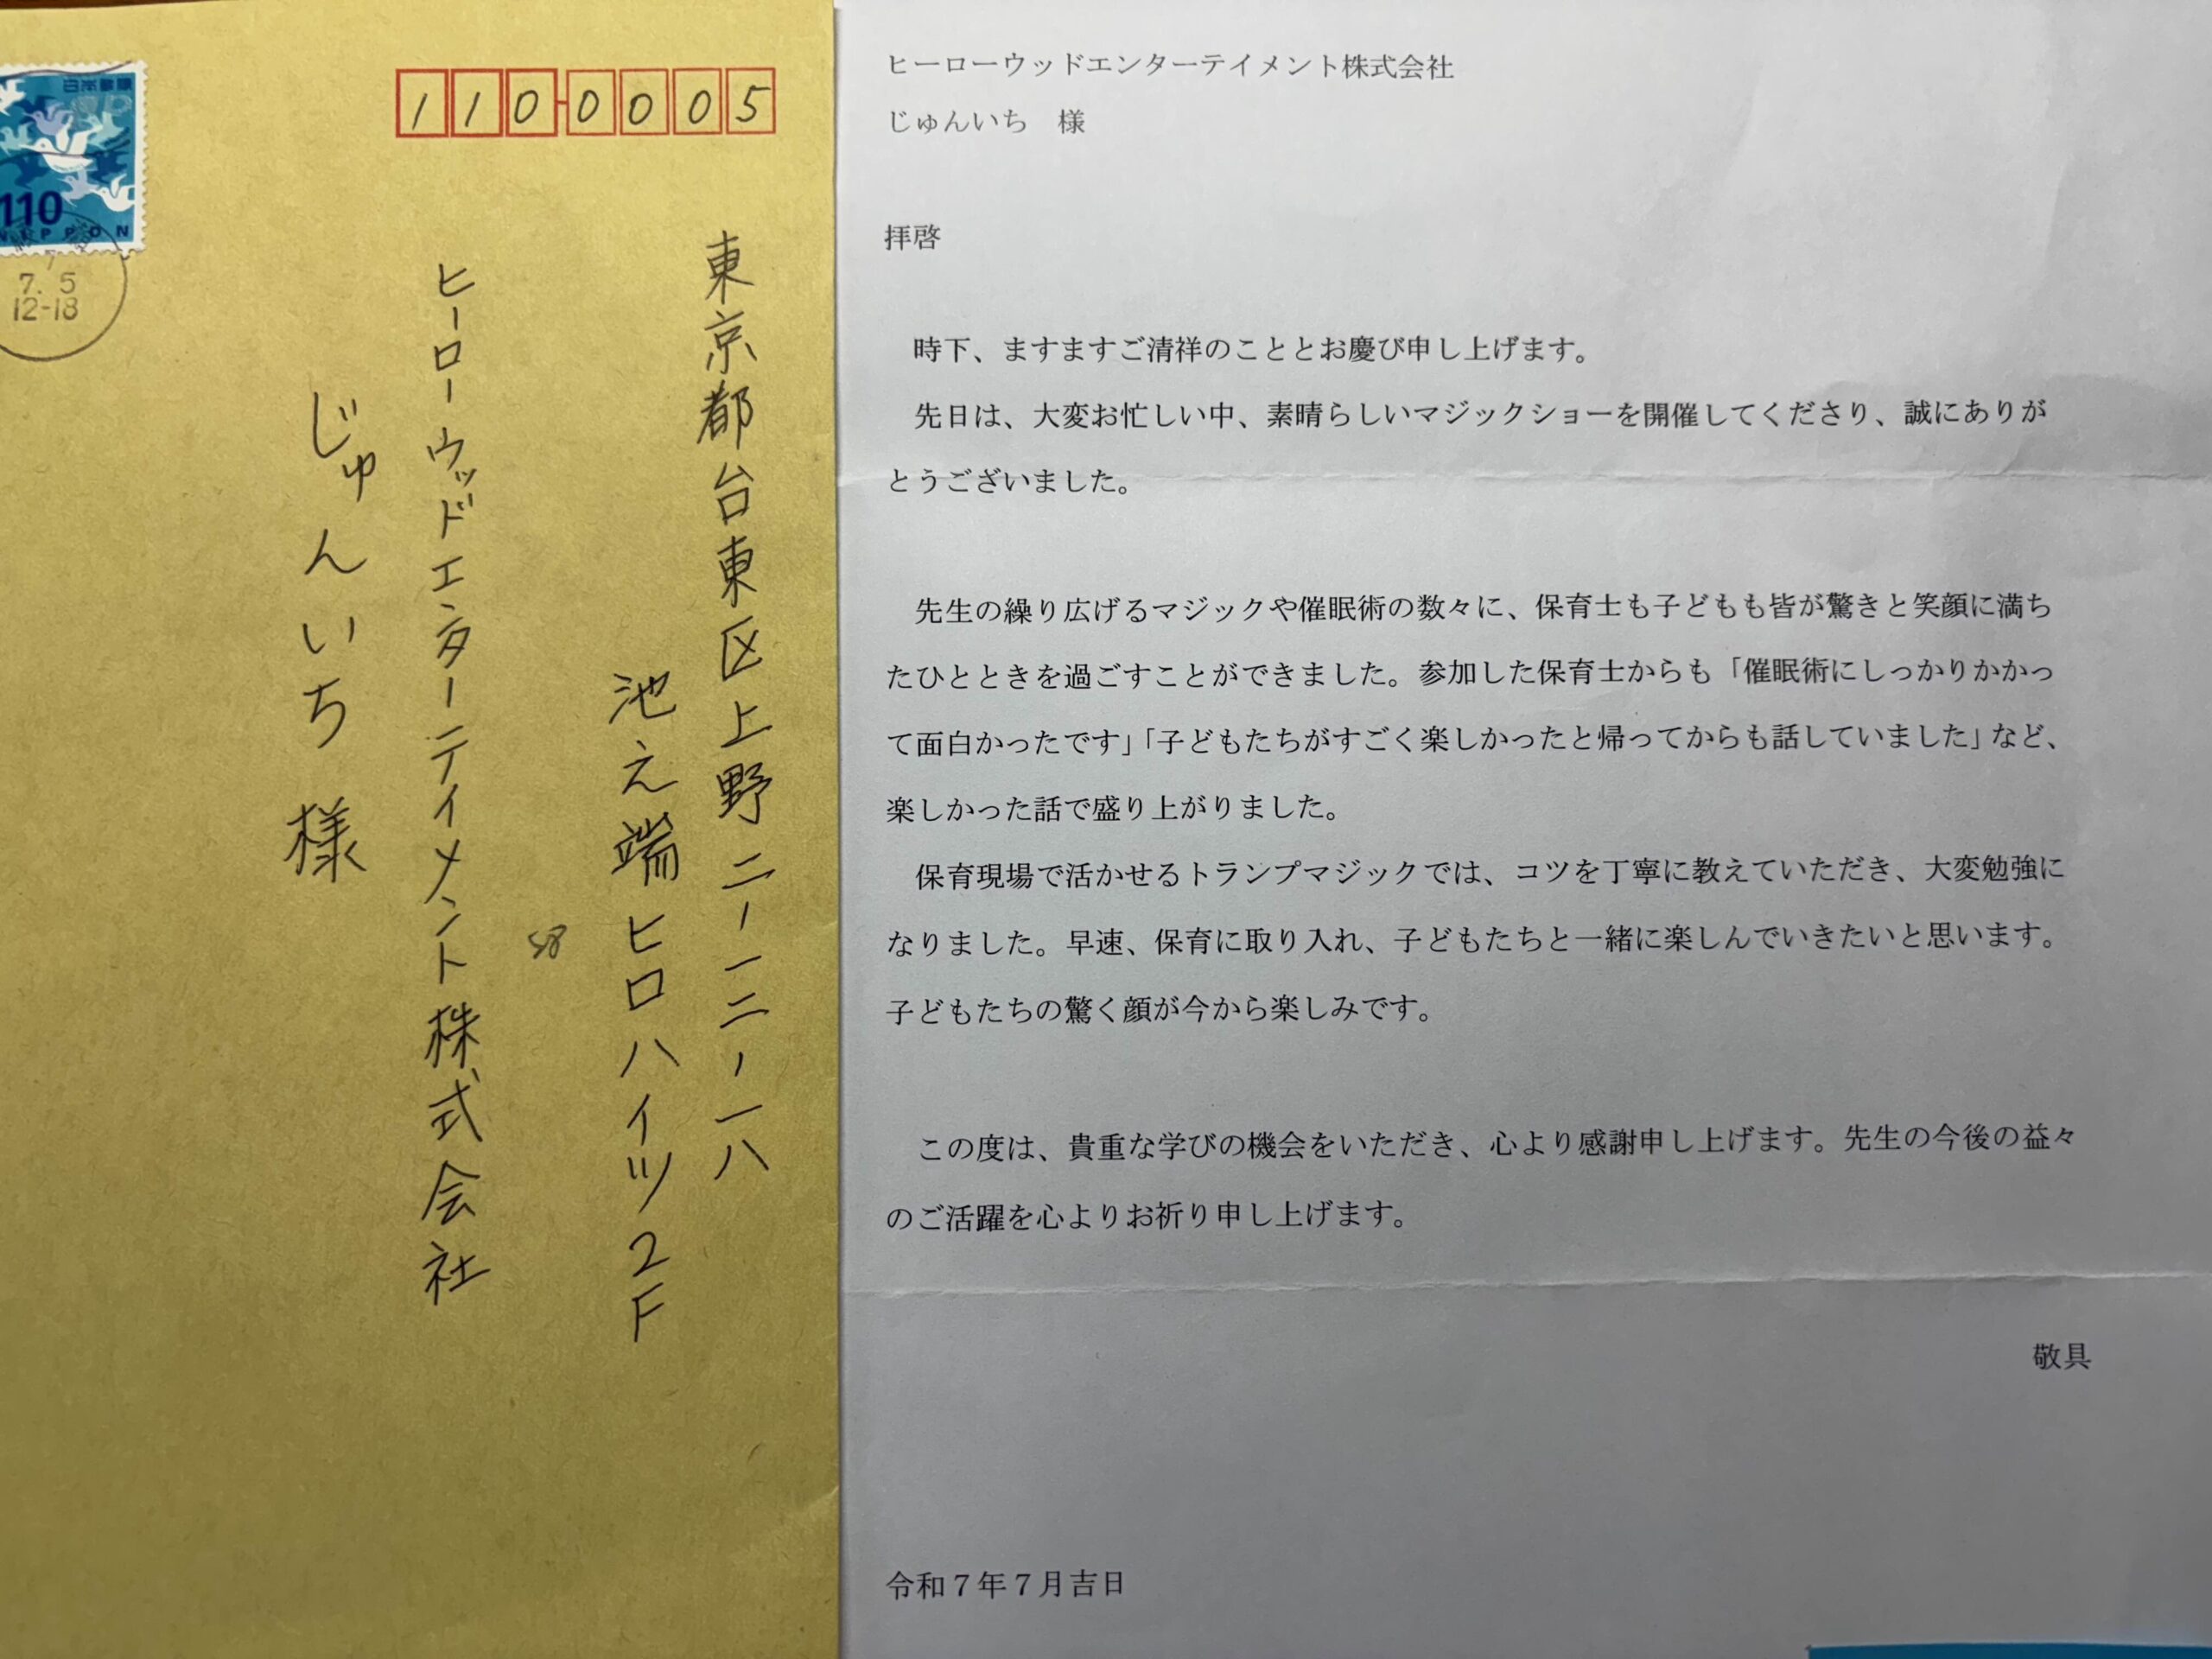 日本郵便
110
NIPPON
7
7. 5
12-18
1100005
東京都台東区上野二ー一二ー一八
池之端ヒロハイツ2F
58
ヒーローウッドエンターテイメント株式会社
じゅんいち 様
ヒーローウッドエンターテイメント株式会社
じゅんいち 様
拝啓
時下、ますますご清祥のこととお慶び申し上げます。
先日は、大変お忙しい中、素晴らしいマジックショーを開催してくださり、誠にありが
とうございました。
先生の繰り広げるマジックや催眠術の数々に、保育士も子どもも皆が驚きと笑顔に満ち
たひとときを過ごすことができました。参加した保育士からも「催眠術にしっかりかかっ
て面白かったです」「子どもたちがすごく楽しかったと帰ってからも話していました」など、
楽しかった話で盛り上がりました。
保育現場で活かせるトランプマジックでは、コツを丁寧に教えていただき、大変勉強に
なりました。早速、保育に取り入れ、子どもたちと一緒に楽しんでいきたいと思います。
子どもたちの驚く顔が今から楽しみです。
この度は、貴重な学びの機会をいただき、心より感謝申し上げます。先生の今後の益々
のご活躍を心よりお祈り申し上げます。
敬具
令和７年７月吉日